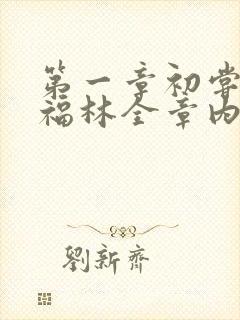 第一章初尝
福林全章内
劉新齊